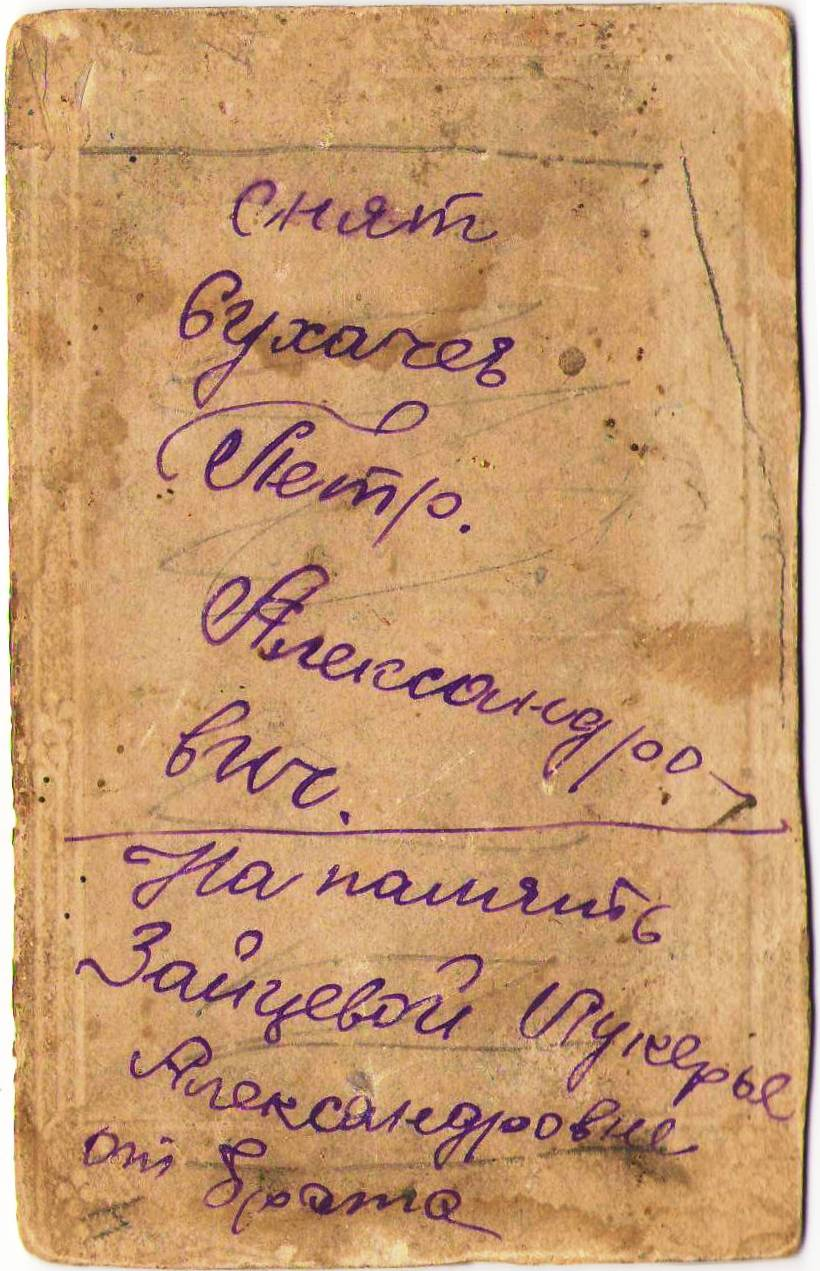 снят
Сухачев
Петр.
Александро
вич.
На память
Зайцевой Лукерье
Александровне
от брата